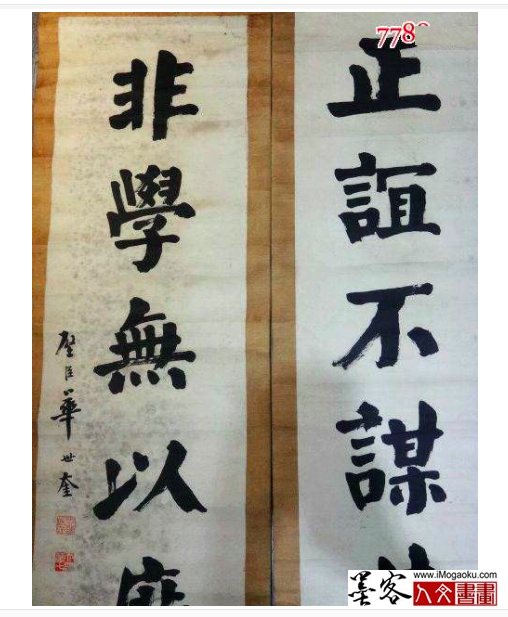 正誼不謀
非學無以
壁臣華世奎
778
墨客
www.iMogaoku.com
人文書畫